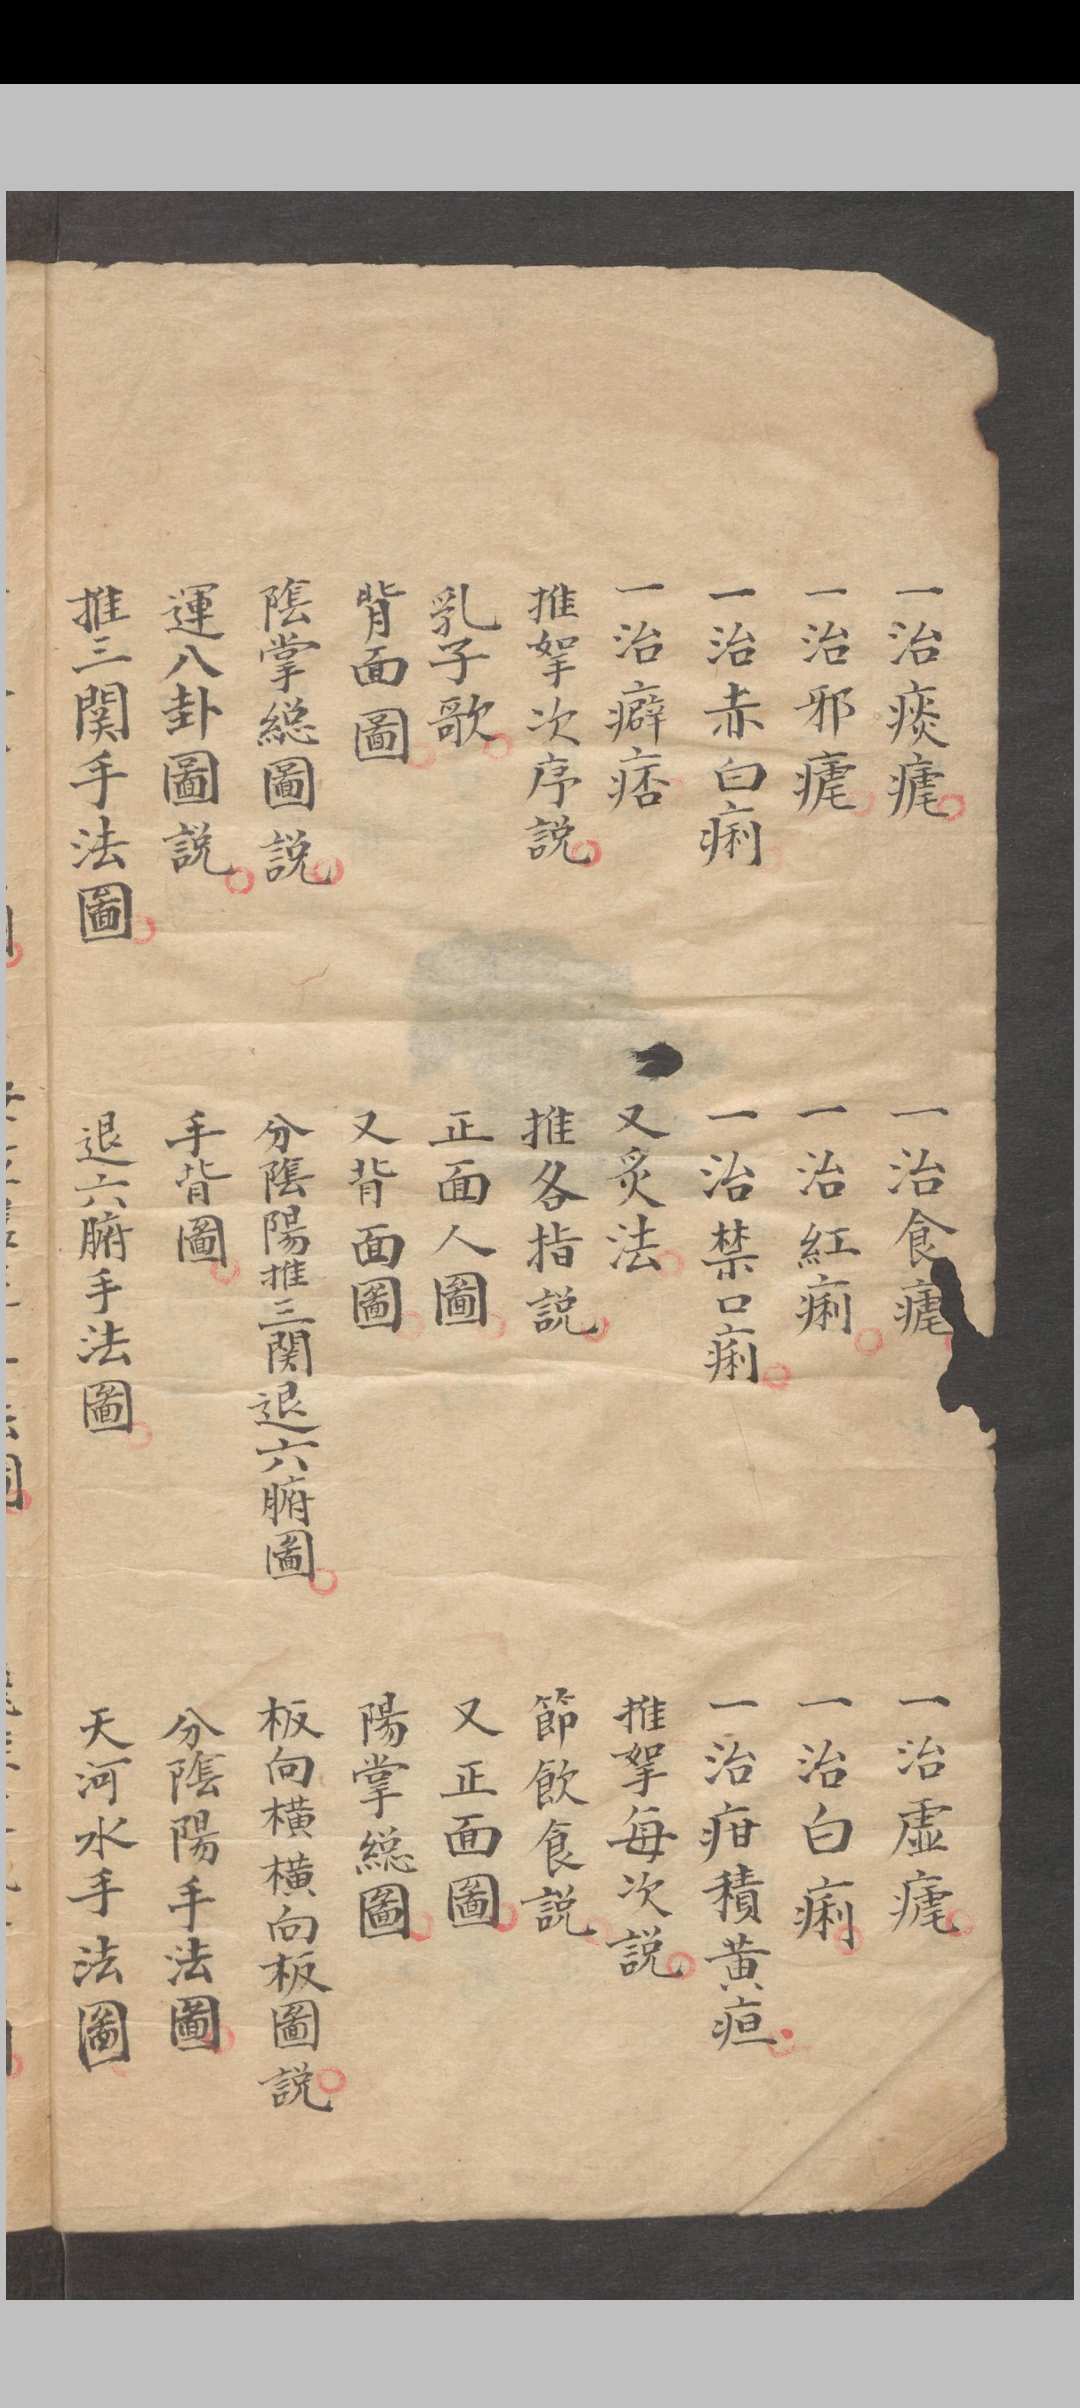 一治痰瘧 一治食瘧 一治虛瘧
一治邪瘧 一治紅痢 一治白痢
一治赤白痢 一治禁口痢 一治疳積黃疸
一治癖痞 又炙法 推拏每次説
推拏次序説 推各指説 節飲食説
乳子歌 正面人圖 又正面圖
背面圖 又背面圖 陽掌総圖
陰掌総圖説 分陰陽推三関退六腑圖 板向橫橫向板圖説
運八卦圖説 手背圖 分陰陽手法圖
推三関手法圖 退六腑手法圖 天河水手法圖